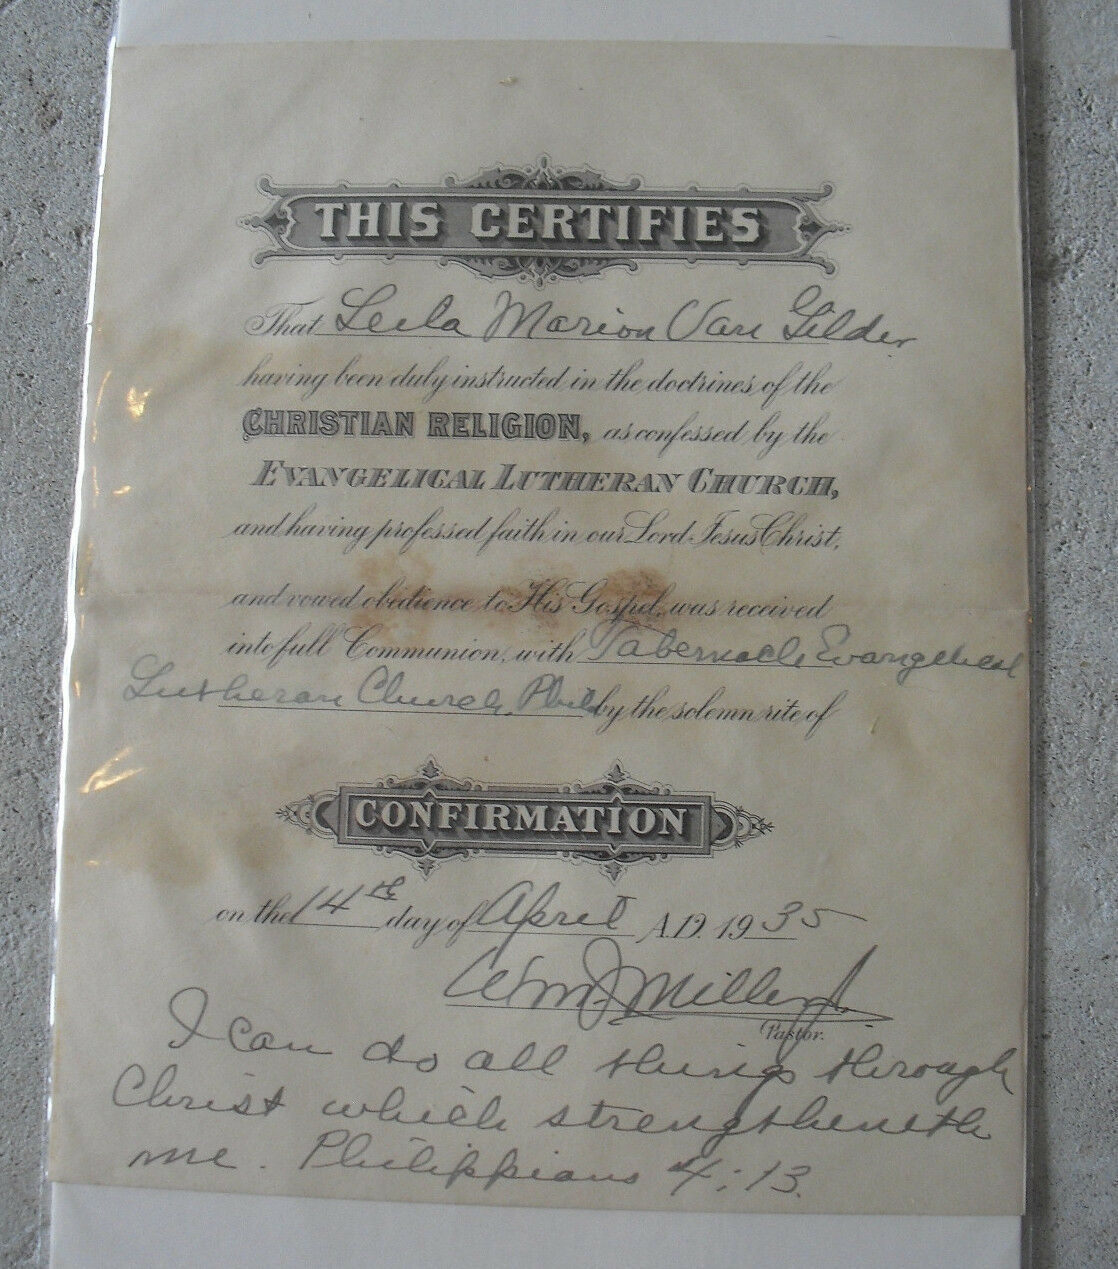 THIS CERTIFIES
That Leila Marion Van Gilder
having been duly instructed in the doctrines of the
CHRISTIAN RELIGION, as confessed by the
EVANGELICAL LUTHERAN CHURCH,
and having professed faith in our Lord Jesus Christ,
and vowed obedience to His Gospel, was received
into full Communion, with Tabernacle Evangelical
Lutheran Church, Phila by the solemn rite of
CONFIRMATION
on the 14th day of April A.D. 1935
Wm J Miller Jr.
Pastor.
I can do all things through
Christ which strengtheneth
me. Philippians 4:13.